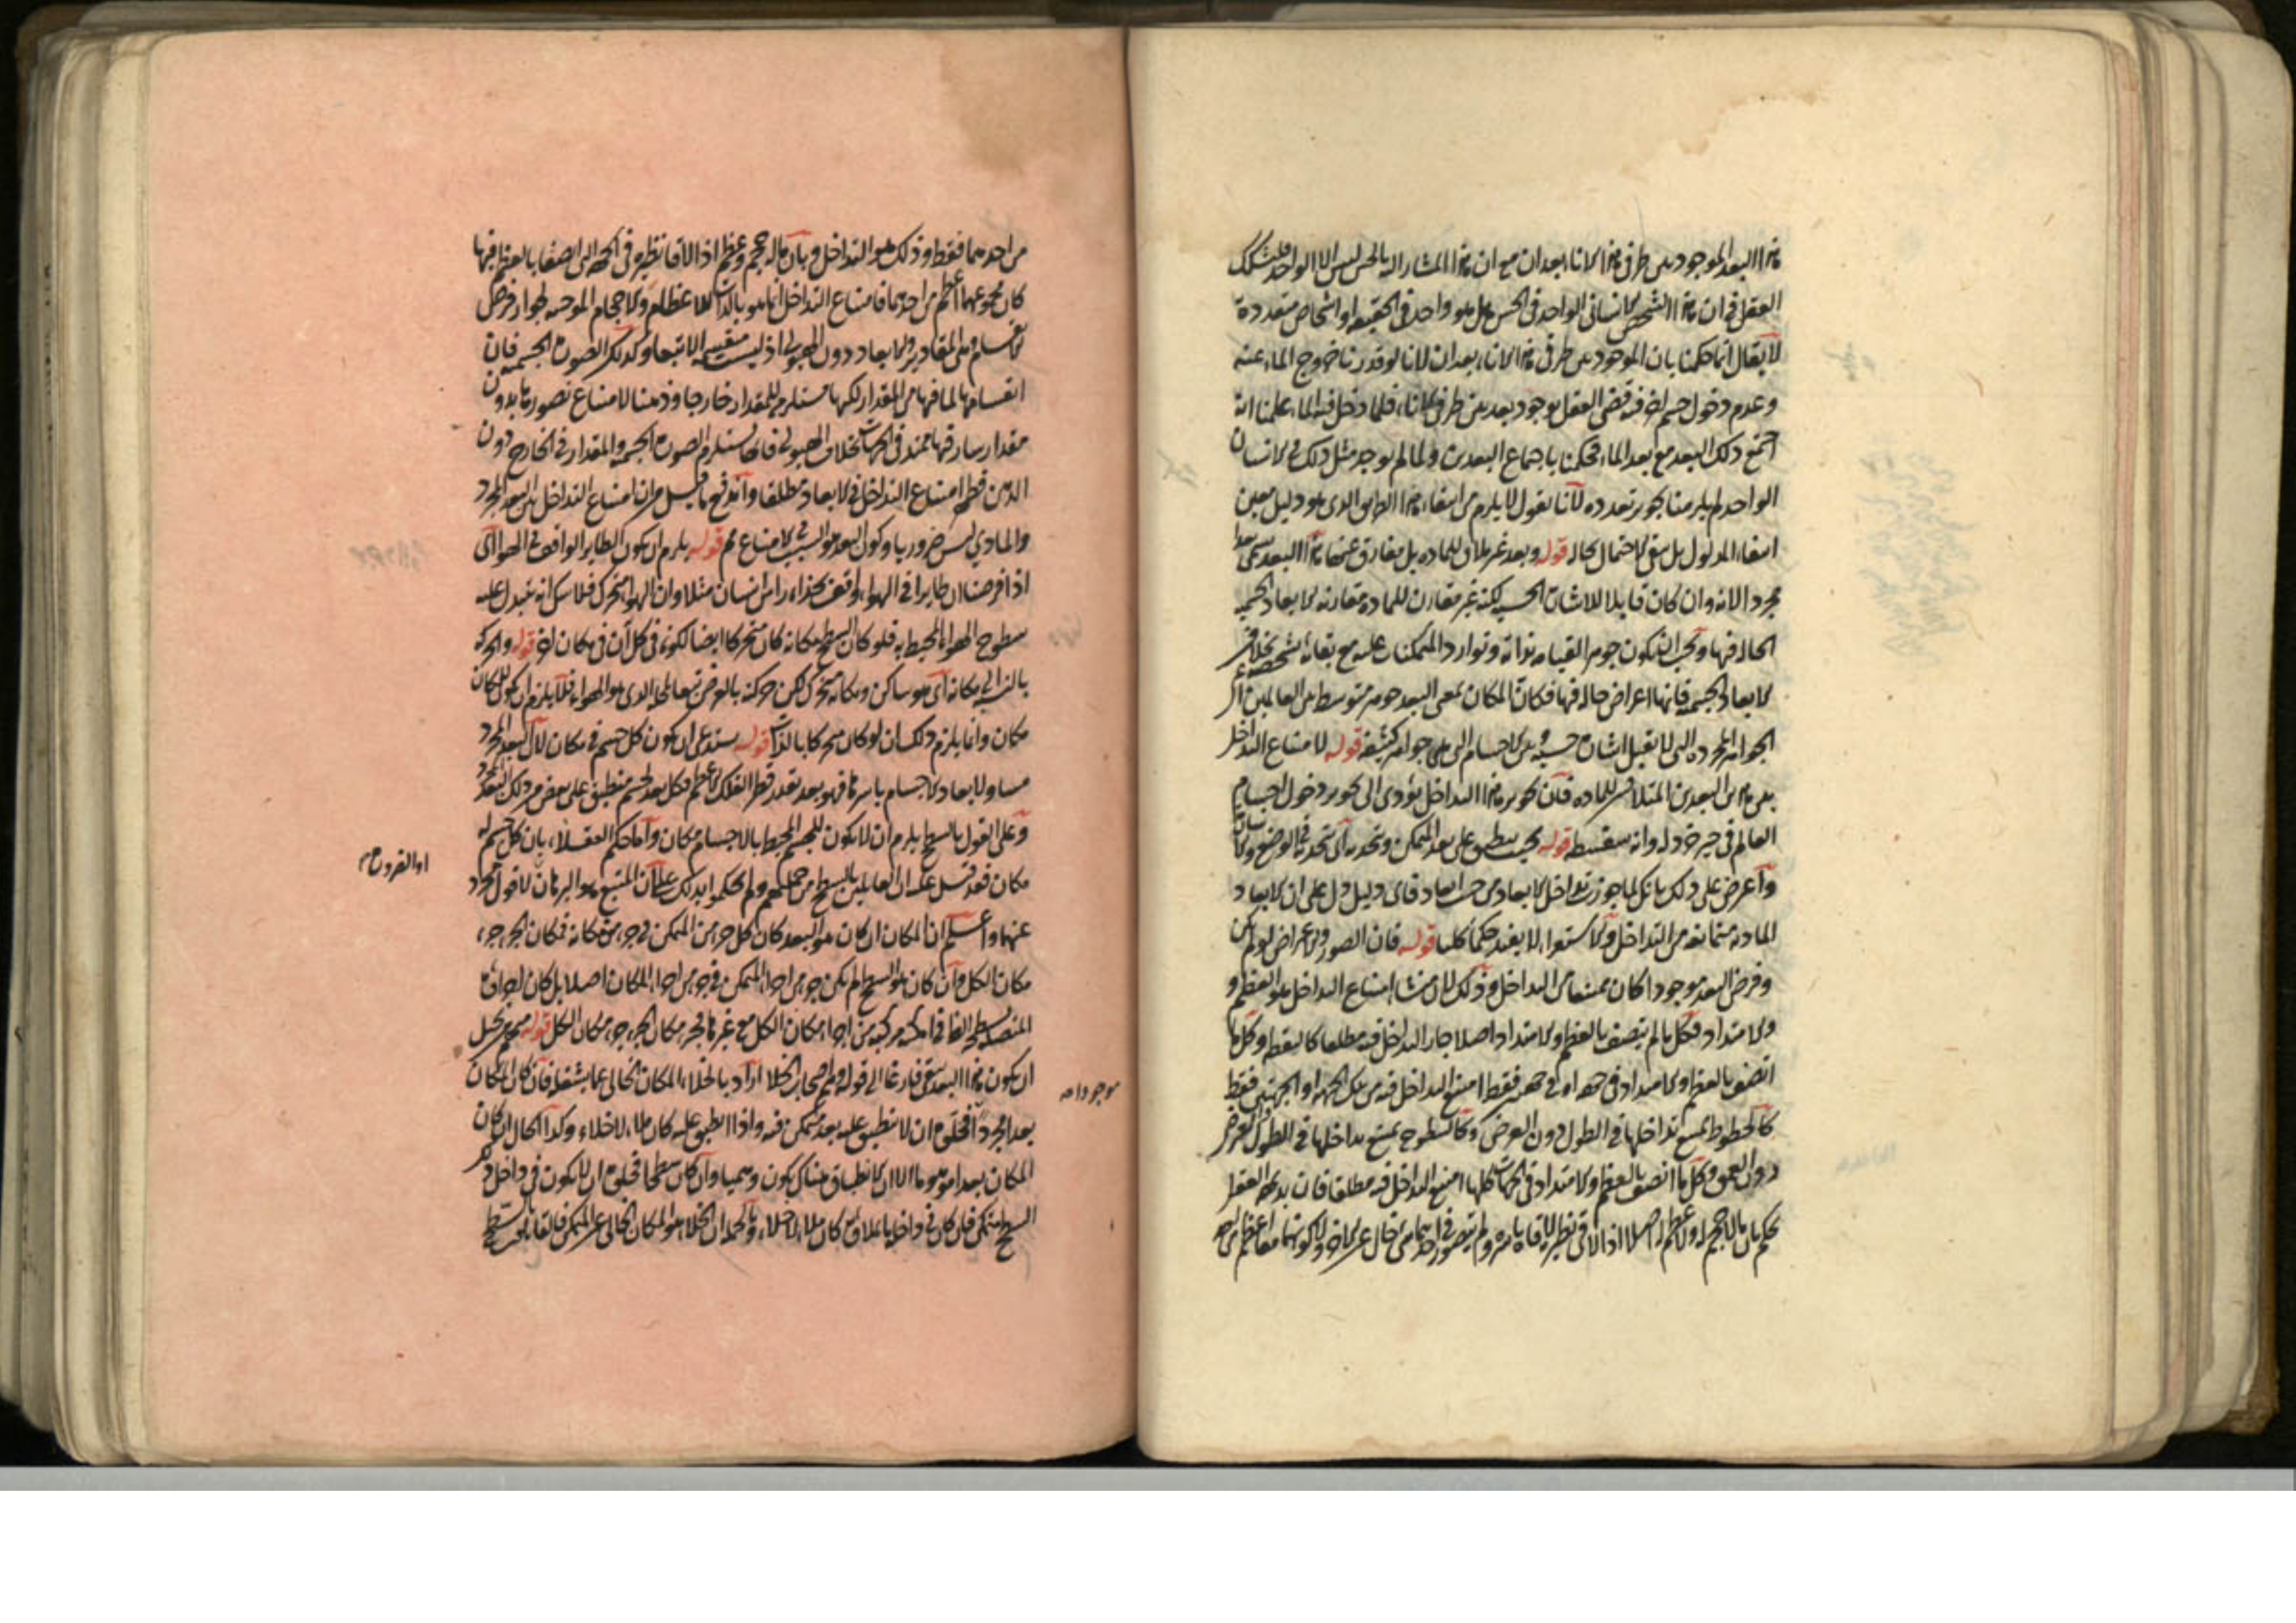 هذا البعد الموجود بين طرفي هذا الاناء بعدان مع ان هذا المشار اليه بالحس ليس الا الواحد فليشكك
العقل في ان هذا الشخص الانساني الواحد في الحس هل هو واحد في الحقيقة او اشخاص متعددة
لا يقال انما حكمنا بان الموجود بين طرفي هذا الاناء بعدان لانا لو قدرنا خروج الماء عنه
وعدم دخول جسم اخر فيه قضى العقل بوجود بعد بين طرفي الاناء فلما دخل فيه الماء علمنا انه
اجتمع ذلك البعد مع بعد الماء فحكمنا باجتماع البعدين ولما لم يوجد مثل ذلك في الانسان
الواحد لم يلزمنا تجويز تعدده لانا نقول لا يلزم من انتفاء هذا الطريق الذي هو دليل معين
انتفاء المدلول بل يبقى الاحتمال بحاله قوله وبعد غير ملاق للمادة بل مفارق عنها هذا البعد يسمى بعدا
مجردا لانه وان كان قابلا للاشارة الحسية لكنه غير مقارن للمادة مقارنة الابعاد الجسمية
الحالة فيها ويجب ان يكون جوهرا لقيامه بذاته وتوارد المتمكنات عليه مع بقائه بشخصه بخلاف
الابعاد الجسمية فانها اعراض حالة فيها فكان المكان بمعنى البعد جوهر متوسط بين العالمين اي
الجواهر المجردة التي لا تقبل اشارة حسية وبين الاجسام التي هي جواهر كثيفة قوله لامتناع التداخل
بين هذين البعدين المتلاقيين للمادة فان تجويز هذا التداخل يؤدي الى تجويز دخول اجسام
العالم في حيز خردلة وانه سفسطة قوله بحيث ينطبق على بعد المتمكن ويتحد به اي يتحد في الوضع والاشارة
واعترض على ذلك بانكم لما جوزتم تداخل الابعاد من حيث ابعاد فاي دليل دل على ان الابعاد
المادية متمانعة من التداخل والاستقراء لا يفيد حكما كليا قوله فان الصور والاعراض لو لم تكن
وفرض البعد موجودا كان ممتنعا من التداخل وذلك لان منشا امتناع التداخل هو العظم و
والامتداد فكل ما لم يتصف بالعظم والامتداد اصلا جاز التداخل فيه مطلقا كالنقطة وكل ما
اتصف بالعظم والامتداد في جهة او في جهتين فقط امتنع التداخل فيه من تلك الجهة او الجهتين فقط
كالخطوط يمتنع تداخلها في الطول دون العرض وكالسطوح يمتنع تداخلها في الطول والعرض
دون العمق وكل ما اتصف بالعظم والامتداد في الجهات كلها امتنع التداخل فيه مطلقا فان بديهة العقل
تحكم بان ما لا حجم له ولا عظم له اصلا اذا لاقى نظيره لاقاه باسره ولم يتصور في احدهما من خال عن الاخر ولا كونهما معا اعظم من احد
من احدهما فقط وذلك هو التداخل وبان ما له حجم وعظم اذا لاقا نظيره في الجهة التي اتصفا بالعظم فيها
كان مجموعهما اعظم من احدهما فامتناع التداخل انما هو بالذات للاعظام والاحجام الموجبة لجواز فرض
الانقسام وهي المقادير والابعاد دون الهيولى اذ ليست منقسمة الا تبعا وكذلك الصورة الجسمية فان
انقسامها لما فيها من المقدار لكنها مستلزم للمقدار خارجا وذهنا لامتناع تصورها بدون
مقدار سار فيها ممتد في الجهات بخلاف الهيولى فانها تستلزم الصورة الجسمية والمقدار في الخارج دون
الذهن فظهر امتناع التداخل في الابعاد مطلقا واندفع ما قيل من ان امتناع التداخل بين البعد المجرد
والمادي ليس ضروريا وكون البعد هو السبب في الامتناع مم قوله يلزم ان يكون الطاير الواقف في الهواء الى
اذا فرضنا ان طايرا في الهواء واقف بحذاء راس انسان مثلا وان الهواء متحرك فلا شك انه تتبدل عليه
سطوح الهواء المحيط به فلو كان السطح مكانه كان متحركا ايضا لكونه في كل آن في مكان اخر قوله والحركة
بالنسبة الى مكانه اي هو ساكن ومكانه متحرك لكن حركته بالعرض تبعا لمحله الذي هو الهواء فلا يلزم ان يكون للمكان
مكان وانما يلزم ذلك ان لو كان متحركا بالذات قوله يستدعي ان يكون كل جسم في مكان لان البعد المجرد
مساو لابعاد الاجسام باسرها فهو بعد بقدر قطر الفلك الاعظم فكل بعد لجسم منطبق على بعض من ذلك البعد المجرد
وعلى القول بالسطح يلزم ان لا يكون للجسم المحيط بالاجسام مكان واما حكم العقلاء بان كل جسم له
مكان فقد قيل عليه ان القايلين بالسطح من جملتهم ولم يحكموا بذلك على ان المتبع هو البرهان لا قول مجرد
عنها واعلم ان المكان ان كان هو البعد كان كل جزء من المتمكن في جزء من مكانه فكان الجزء جزء
مكان الكل وان كان هو السطح لم يكن جزء من اجزاء المتمكن في جزء من اجزاء المكان اصلا بل كان لاجزائه
المتصلة بسطحه الظاهر امكنة مركبة من اجزاء مكان الكل مع غيرها فجزء مكان الجزء جزء مكان الكل قوله
ان يكون هذا البعد يبقى فارغا الى قوله وهم اصحاب الخلا اراد بالخلاء المكان الخالي عما يشغله فان كان المكان
بعدا مجردا فخلوه ان لا ينطبق عليه بعد متمكن فيه واذا انطبق عليه كان ملاء لا خلاء وكذا الحال ان كان
المكان بعدا موهوما الا ان الانطباق هناك يكون وهميا وان كان سطحا فخلوه ان لا يكون في داخل ذلك
السطح متمكن فان كان في داخله ما يملاه كان ملاء لا خلاء وبالجملة ان الخلاء هو المكان الخالي عن المتمكن فالقايلون بالسطح
او القرون
موجودا صه